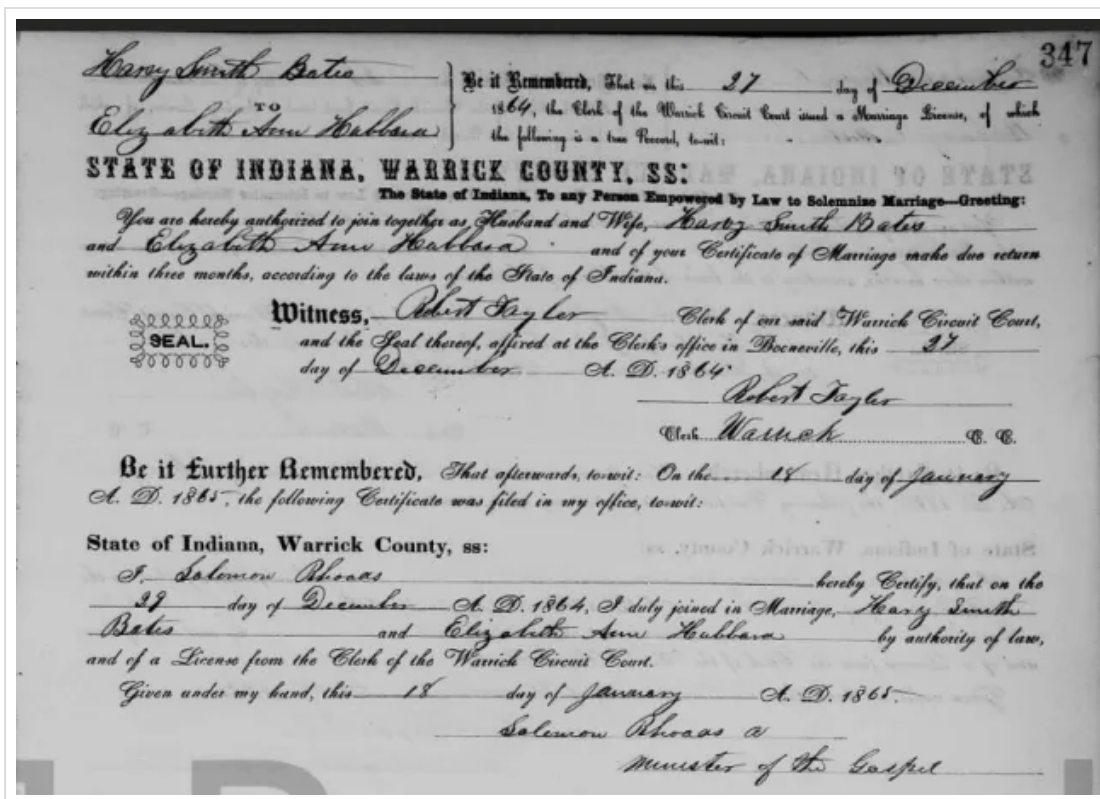 347
Harvy Smith Bates
TO
Elizabeth Ann Hubbard
Be it Remembered, That on this 27 day of December
1864, the Clerk of the Warrick Circuit Court issued a Marriage License, of which
the following is a true Record, to-wit:
STATE OF INDIANA, WARRICK COUNTY, SS:
The State of Indiana, To any Person Empowered by Law to Solemnize Marriage—Greeting:
You are hereby authorized to join together as Husband and Wife, Harvy Smith Bates
and Elizabeth Ann Hubbard and of your Certificate of Marriage make due return
within three months, according to the laws of the State of Indiana.
SEAL.
Witness, Robert Taylor Clerk of our said Warrick Circuit Court,
and the Seal thereof, affixed at the Clerk's office in Booneville, this 27
day of December A. D. 1864
Robert Taylor
Clerk Warrick C. C.
Be it Further Remembered, That afterwards, to-wit: On the 18 day of January
A. D. 1865, the following Certificate was filed in my office, to-wit:
State of Indiana, Warrick County, ss:
I Solomon Rhoads hereby Certify, that on the
29 day of December A. D. 1864, I duly joined in Marriage, Harvy Smith
Bates and Elizabeth Ann Hubbard by authority of law,
and of a License from the Clerk of the Warrick Circuit Court.
Given under my hand, this 18 day of January A. D. 1865
Solomon Rhoads a
Minister of the Gospel